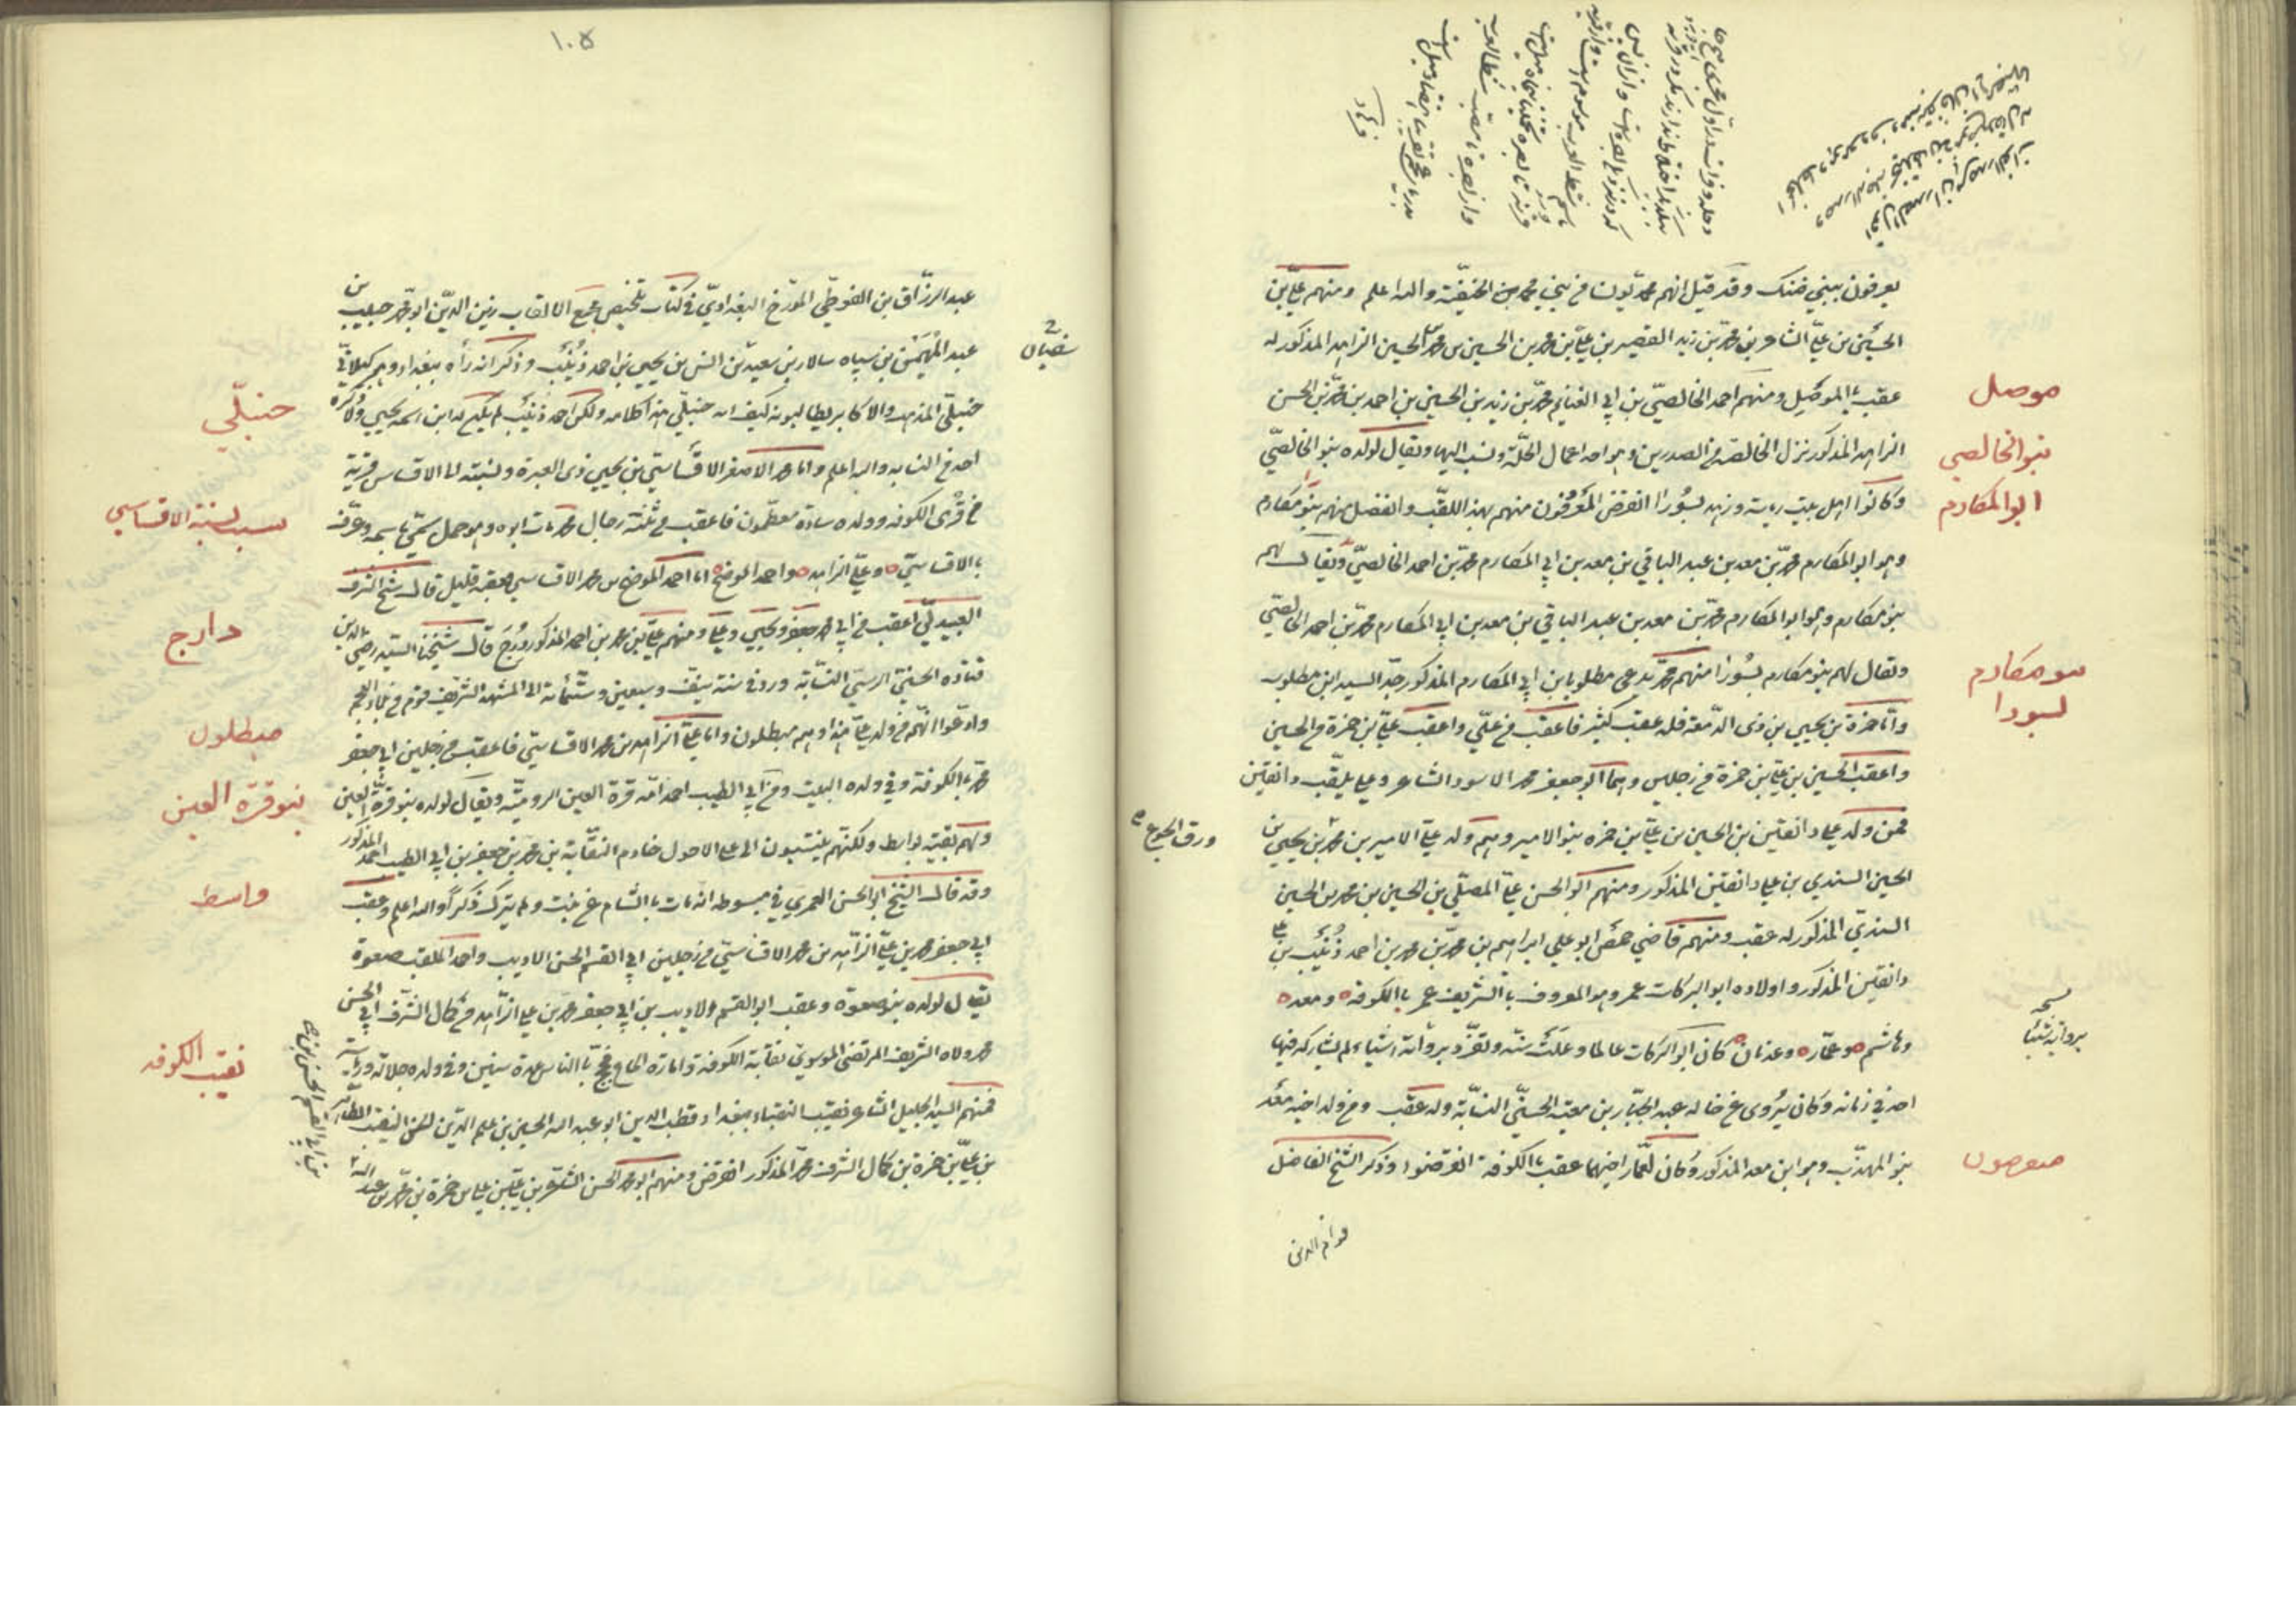 يعرفون ببني ضنك وقد قيل انهم محمديون من بني محمد بن الحنفية والله اعلم ومنهم علي بن
الحسين بن علي الشاعر بن محمد بن زيد القصير بن علي بن محمد بن الحسين بن محمد بن الحسين الزاهد المذكور له
عقب بالموصل ومنهم احمد الخالصي بن ابي الغنايم محمد بن زيد بن الحسين بن احمد بن محمد بن الحسن
الزاهد المذكور نزل الخالصه من الصدرين وهو احد اعمال الحلة ونسب اليها ويقال لولده بنو الخالصي
وكانوا اهل بيت رياسة وزهد بسورا انقرض المعروفون منهم بهذا اللقب وانفصل منهم بنو مكارم
وهو ابو المكارم محمد بن معد بن عبد الباقي بن معد بن ابي المكارم محمد بن احمد الخالصي ويقال لهم
بنو مكارم وهو ابو المكارم محمد بن معد بن عبد الباقي بن معد بن ابي المكارم محمد بن احمد الخالصي
ويقال لهم بنو مكارم بسورا منهم محمد يدعى مطلوبا بن ابي المكارم المذكور جد السيد ابن مطلوب
واما حمزة بن يحيى بن ذى الدمعة فله عقب كثير فاعقب من علي واعقب علي بن حمزة من الحسين
واعقب الحسين بن علي بن حمزة من رجلين وهما ابو جعفر محمد الاسود الشاعر وعلي يلقب دانقين
فمن ولد علي دانقين بن الحسين بن علي بن حمزه بنو الامير وهم ولد علي الامير بن محمد بن يحيى بن
الحسين السندي بن علي دانقين المذكور ومنهم ابو الحسن علي المصلي بن الحسين بن محمد بن الحسين
السندي المذكور له عقب ومنهم قاضي حمص ابو علي ابراهيم بن محمد بن محمد بن احمد ذنيب بن علي
دانقين المذكور واولاده ابو البركات عمر وهو المعروف بالشريف عمر بالكوفة ومعد
وهاشم وعمار وعدنان كان ابو البركات عالما وعلت سنه وتفرد برواية اشياء لم يشاركه فيها
احد في زمانه وكان يروى عن خاله عبد الجبار بن معية الحسني النسابة وله عقب ومن ولد اخيه معد
بنو المهذب وهو ابن معد المذكور وكان لعمار اخيهما عقب بالكوفة انقرضوا وذكر الشيخ الفاضل
قوام الدين
موصل
بنو الخالصي
ابو المكارم
بنو مكارم
بسورا
ورق الجوع
نسخه
برواية شيئا
منقرضون
١٠٥
عبد الرزاق بن الفوطي المؤرخ البغدادي في كتاب تلخيص مجمع الالقاب زين الدين ابو محمد حبيب بن
عبد المهيمن بن سپاه سالار بن سعيد بن انس بن يحيى بن احمد ذنيب وذكر انه رأه ببغداد وهو كيلاني
حنبلي المذهب والاكابر يطالبونه كيف انه حنبلي هذا كلامه ولكن احمد ذنيب لم يكن له ابن اسمه يحيى ولا ذكره
احد من النسابه والله اعلم واما محمد الاصغر الاقساسي بن يحيى بن ذى العبرة ونسبته الى الاقساس قرية
من قرى الكوفه وولده سادة معظمون فاعقب من ثلثة رجال محمد مات ابوه وهو حمل سمي باسمه وعرف
بالاقساسي وعلي الزاهد واحمد الموضح اما احمد الموضح بن محمد الاقساسي فعقبه قليل قال شيخ الشرف
العبيدلي اعقب من ابي محمد جعفر ويحيى وعلي ومنهم علي بن محمد بن احمد المذكور درج قال شيخنا السيد رضي الدين
قتاده الحسني الرسي النسابة ورد في سنة نيف وسبعين وستمائة الى المشهد الشريف قوم من بلاد العجم
وادعوا انهم من ولد علي هذا وهم مبطلون واما علي الزاهد بن محمد الاقساسي فاعقب من رجلين ابي جعفر
محمد بالكوفة وفي ولده البيت ومن ابي الطيب احمد امه قرة العين الرومية ويقال لولده بنو قرة العين
ولهم بقية بواسط ولكنهم ينتسبون الى علي الاحول خادم النقابة بن محمد بن جعفر بن ابي الطيب احمد المذكور
وقد قال الشيخ ابو الحسن العمري في مبسوطه انه مات بالشام عن بنت ولم يترك ذكرا والله اعلم وعقب
ابي جعفر محمد بن علي الزاهد بن محمد الاقساسي من رجلين ابي القسم الحسن الاديب واحمد الملقب صعوة
يقال لولده بنو صعوة وعقب ابو القسم الاديب بن ابي جعفر محمد بن علي الزاهد من كمال الشرف ابي الحسن
محمد ولاه الشريف المرتضى الموسوي نقابة الكوفة وامارة الحاج فحج بالناس عدة سنين وفي ولده جلالة ورياسة
فمنهم السيد الجليل الشاعر نقيب النقباء ببغداد قطب الدين ابو عبد الله الحسين بن علم الدين الحسن النقيب الطاهر
بن علي بن حمزة بن كمال الشرف محمد المذكور انقرض ومنهم ابو محمد الحسن الشاعر بن علي بن علي بن حمزة بن محمد بن عبد الله
حنبلي
سبب نسبة الاقساسي
دارج
مبطلون
بنو قرة العين
واسط
نقيب الكوفه